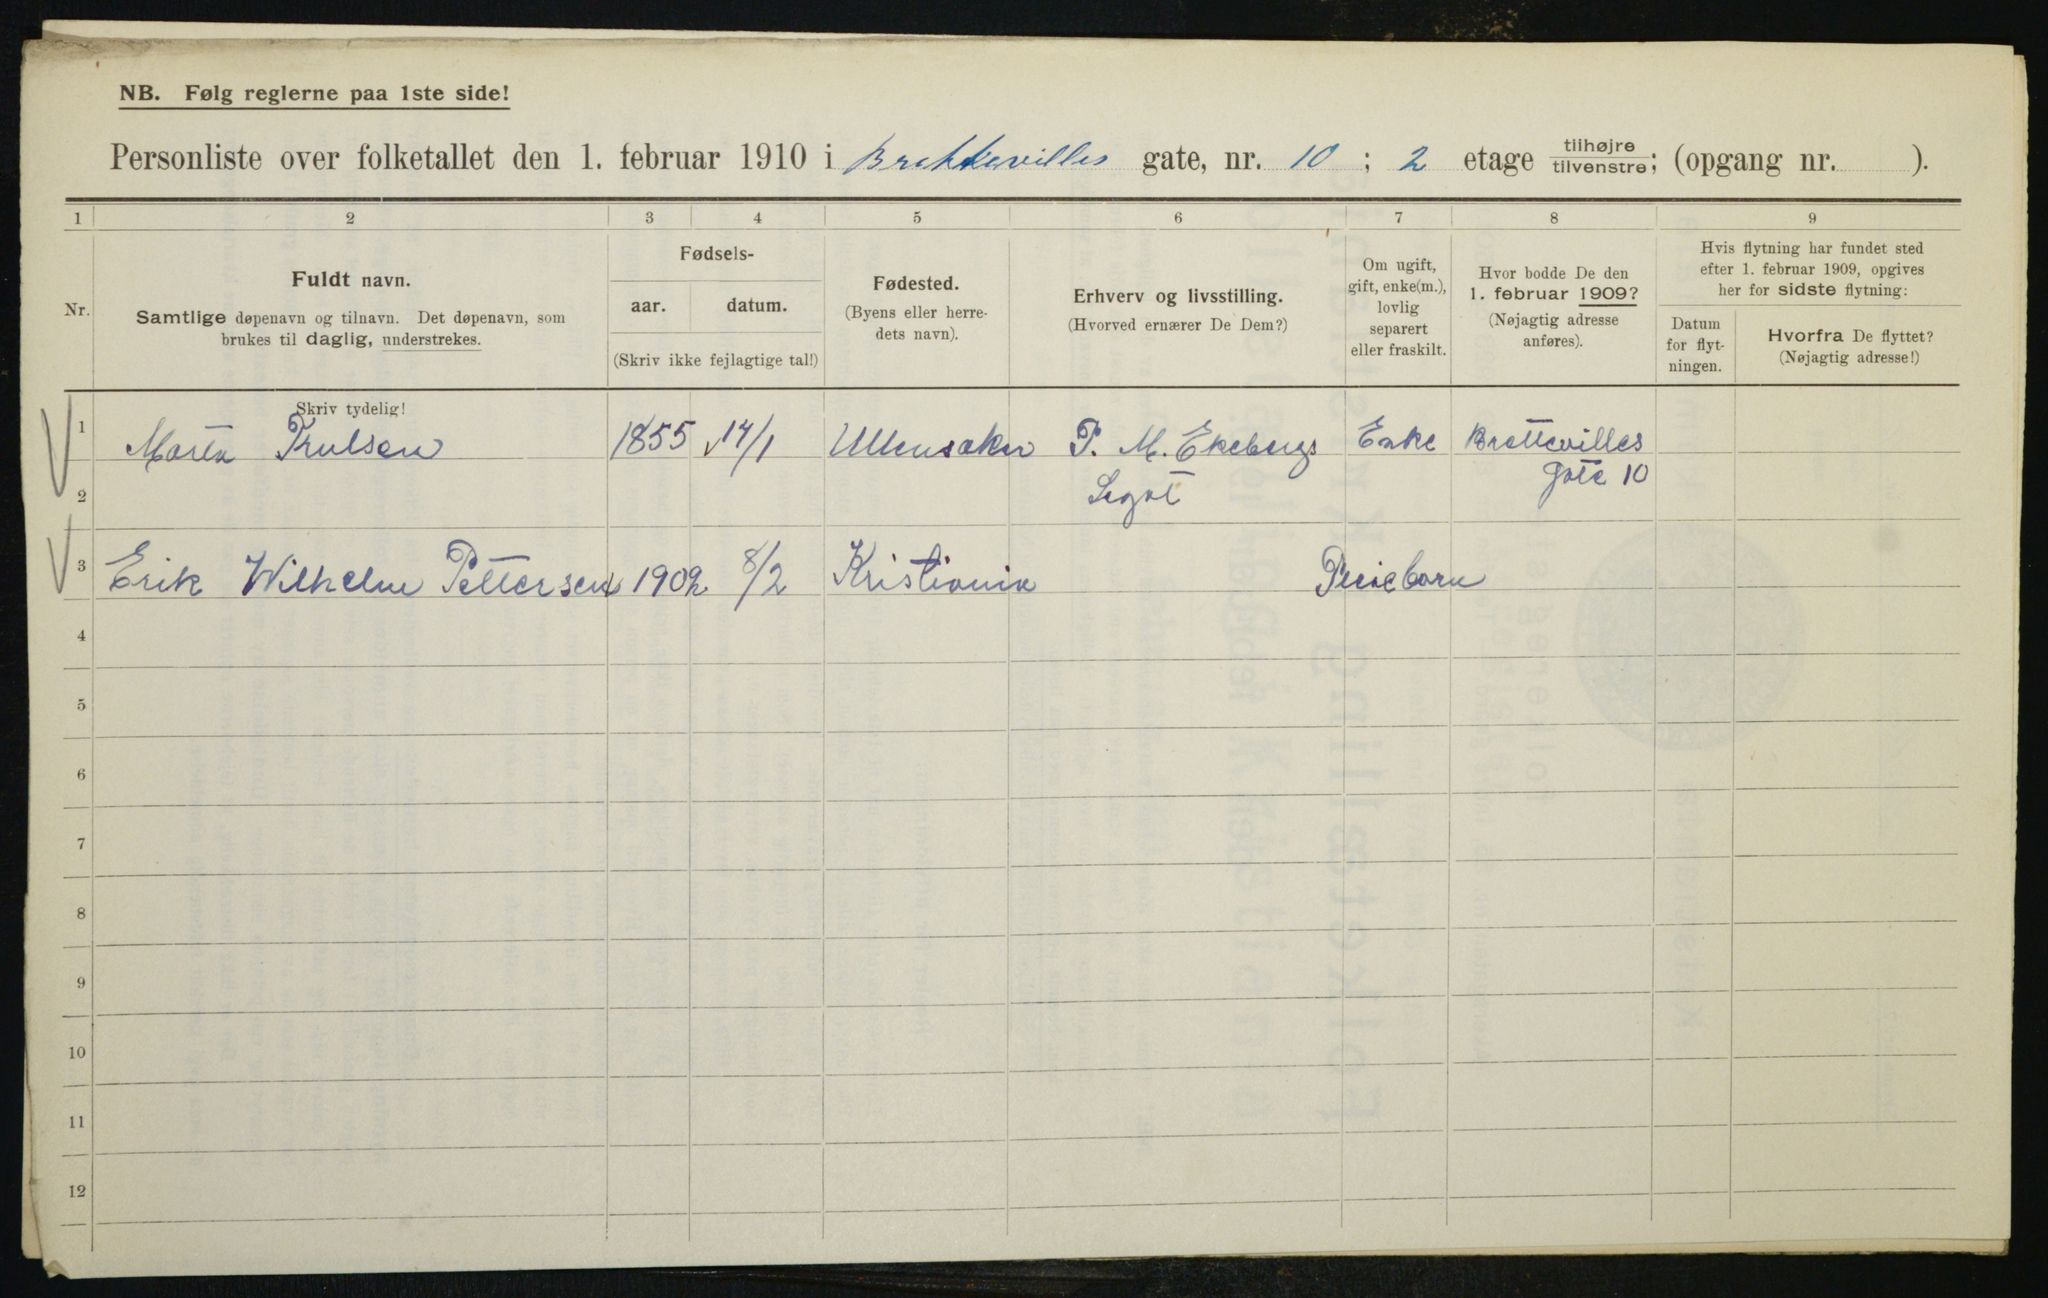 NB. Følg reglerne paa 1ste side!
Personliste over folketallet den 1. februar 1910 i Brettevilles gate, nr. 10 ; 2 etage tilhøjre/tilvenstre; (opgang nr. ).
1 2 3 4 5 6 7 8 9
Nr.
Fuldt navn.
Samtlige døpenavn og tilnavn. Det døpenavn, som
brukes til daglig, understrekes.
Skriv tydelig!
Fødsels-
aar. datum.
(Skriv ikke fejlagtige tal!)
Fødested.
(Byens eller herre-
dets navn).
Erhverv og livsstilling.
(Hvorved ernærer De Dem?)
Om ugift,
gift, enke(m.),
lovlig
separert
eller fraskilt.
Hvor bodde De den
1. februar 1909?
(Nøjagtig adresse
anføres).
Hvis flytning har fundet sted
efter 1. februar 1909, opgives
her for sidste flytning:
Datum
for flyt-
ningen.
Hvorfra De flyttet?
(Nøjagtig adresse!)
1 Marta Trulsen 1855 14/1 Ullensaker P. M. Ekebergs Enke Brettevilles
2 Legat Gate 10
3 Erik Wilhelm Pettersen 1902 8/2 Kristiania Pleiebarn
4
5
6
7
8
9
10
11
12